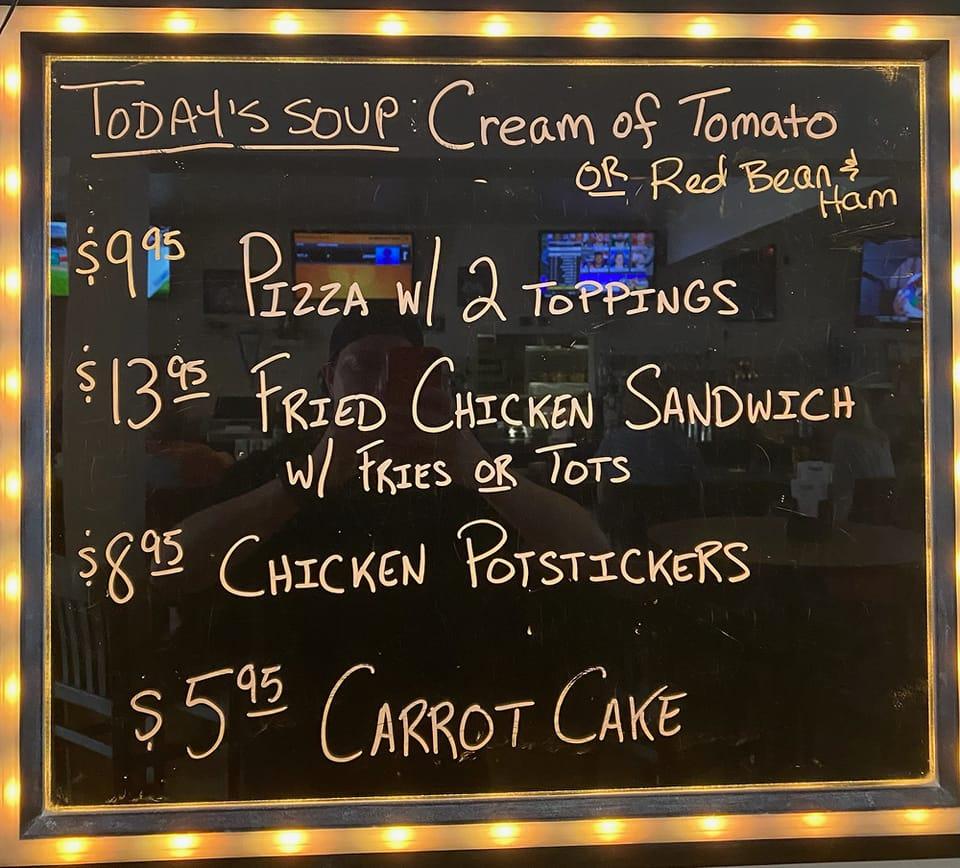 TODAY'S SOUP: Cream of Tomato
OR Red Bean &
Ham
$9.95 PIZZA W/ 2 TOPPINGS
$13.95 FRIED CHICKEN SANDWICH
W/ FRIES OR TOTS
$8.95 CHICKEN POTSTICKERS
$5.95 CARROT CAKE